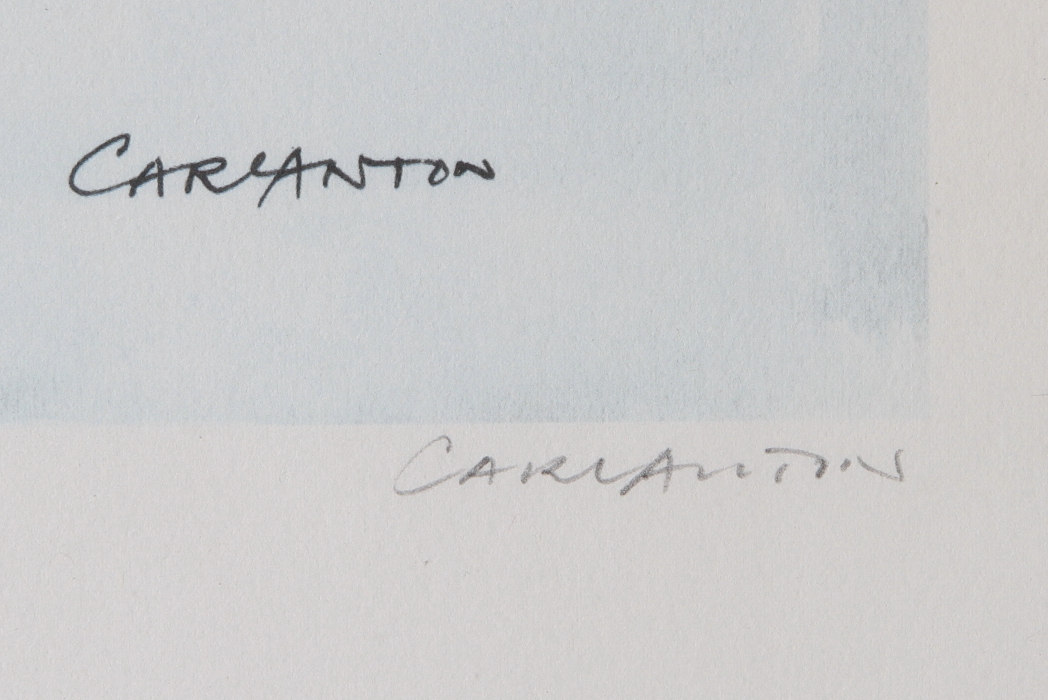 CARLANTON
CARLANTON